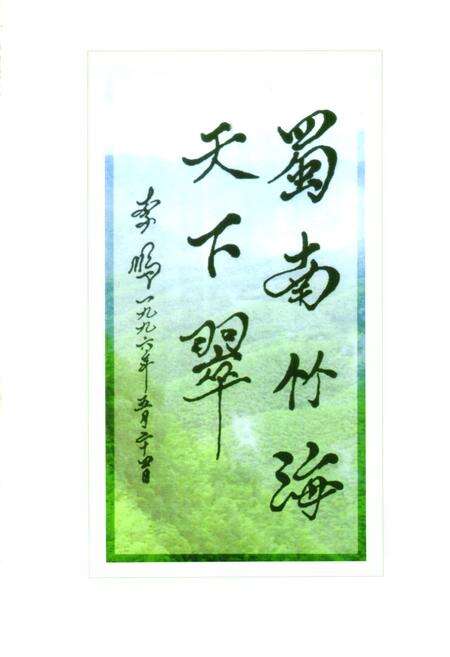 蜀南竹海
天下翠
李鹏一九九六年五月二十四日